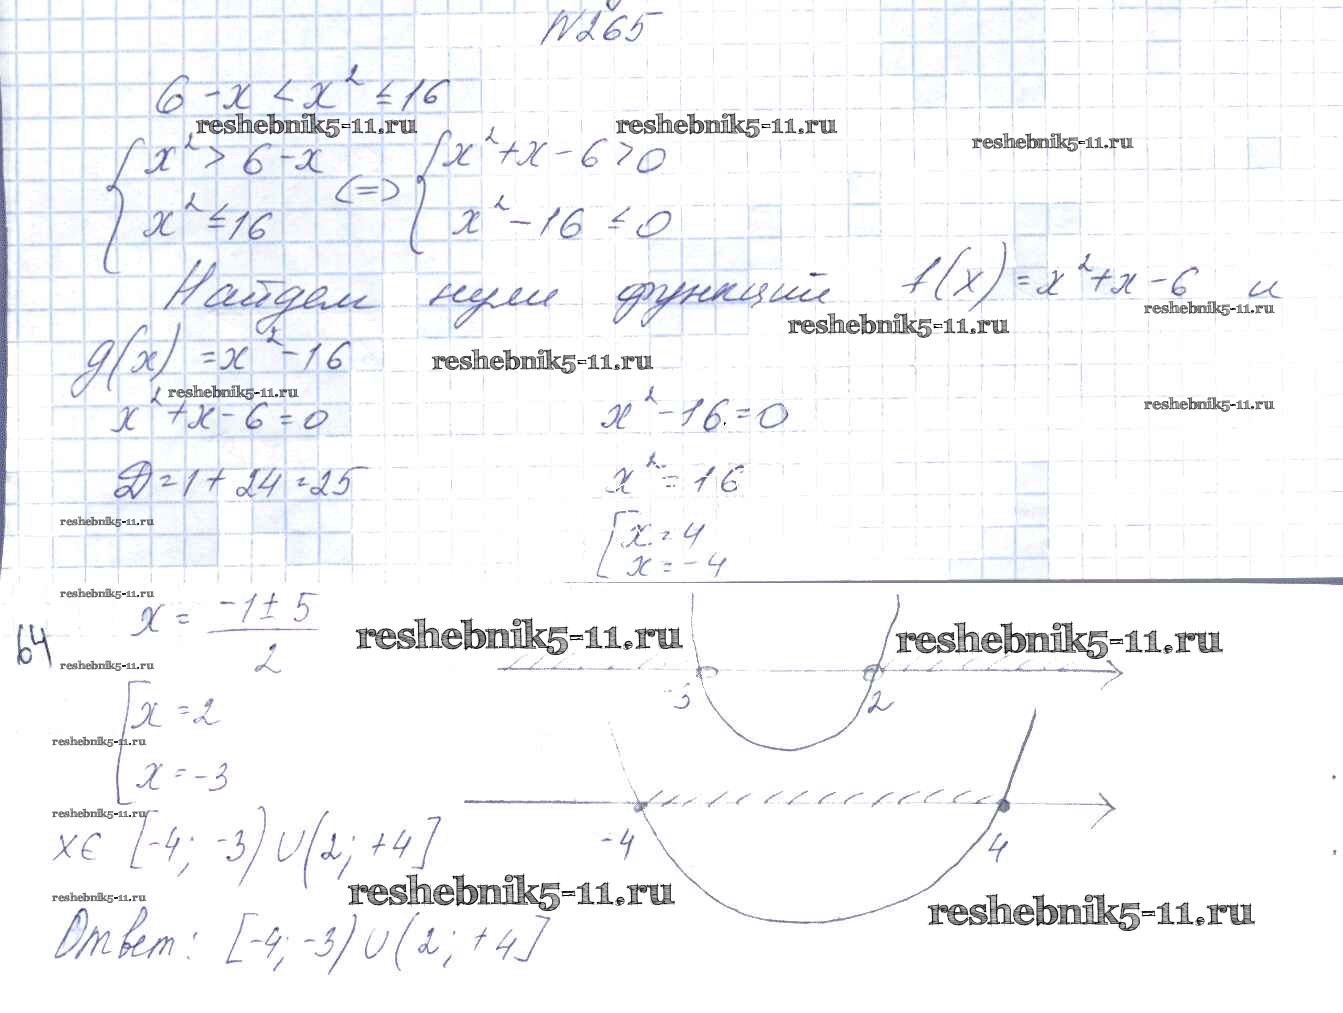 N265
6 - x < x² ≤ 16
reshebnik5-11.ru reshebnik5-11.ru reshebnik5-11.ru
{ x² > 6 - x (=) { x² + x - 6 > 0
x² ≤ 16 x² - 16 ≤ 0
Найдем нули функций f(x) = x² + x - 6 и
reshebnik5-11.ru reshebnik5-11.ru
g(x) = x² - 16 reshebnik5-11.ru
reshebnik5-11.ru reshebnik5-11.ru
x² + x - 6 = 0 x² - 16 = 0
D = 1 + 24 = 25 x² = 16
reshebnik5-11.ru
[ x = 4
x = -4
reshebnik5-11.ru
x = (-1 ± 5)/2 reshebnik5-11.ru reshebnik5-11.ru
64
reshebnik5-11.ru
-3 2
[ x = 2
reshebnik5-11.ru
x = -3
reshebnik5-11.ru
x ∈ [-4; -3) ∪ (2; +4] -4 4
reshebnik5-11.ru reshebnik5-11.ru reshebnik5-11.ru
Ответ: [-4; -3) ∪ (2; +4]